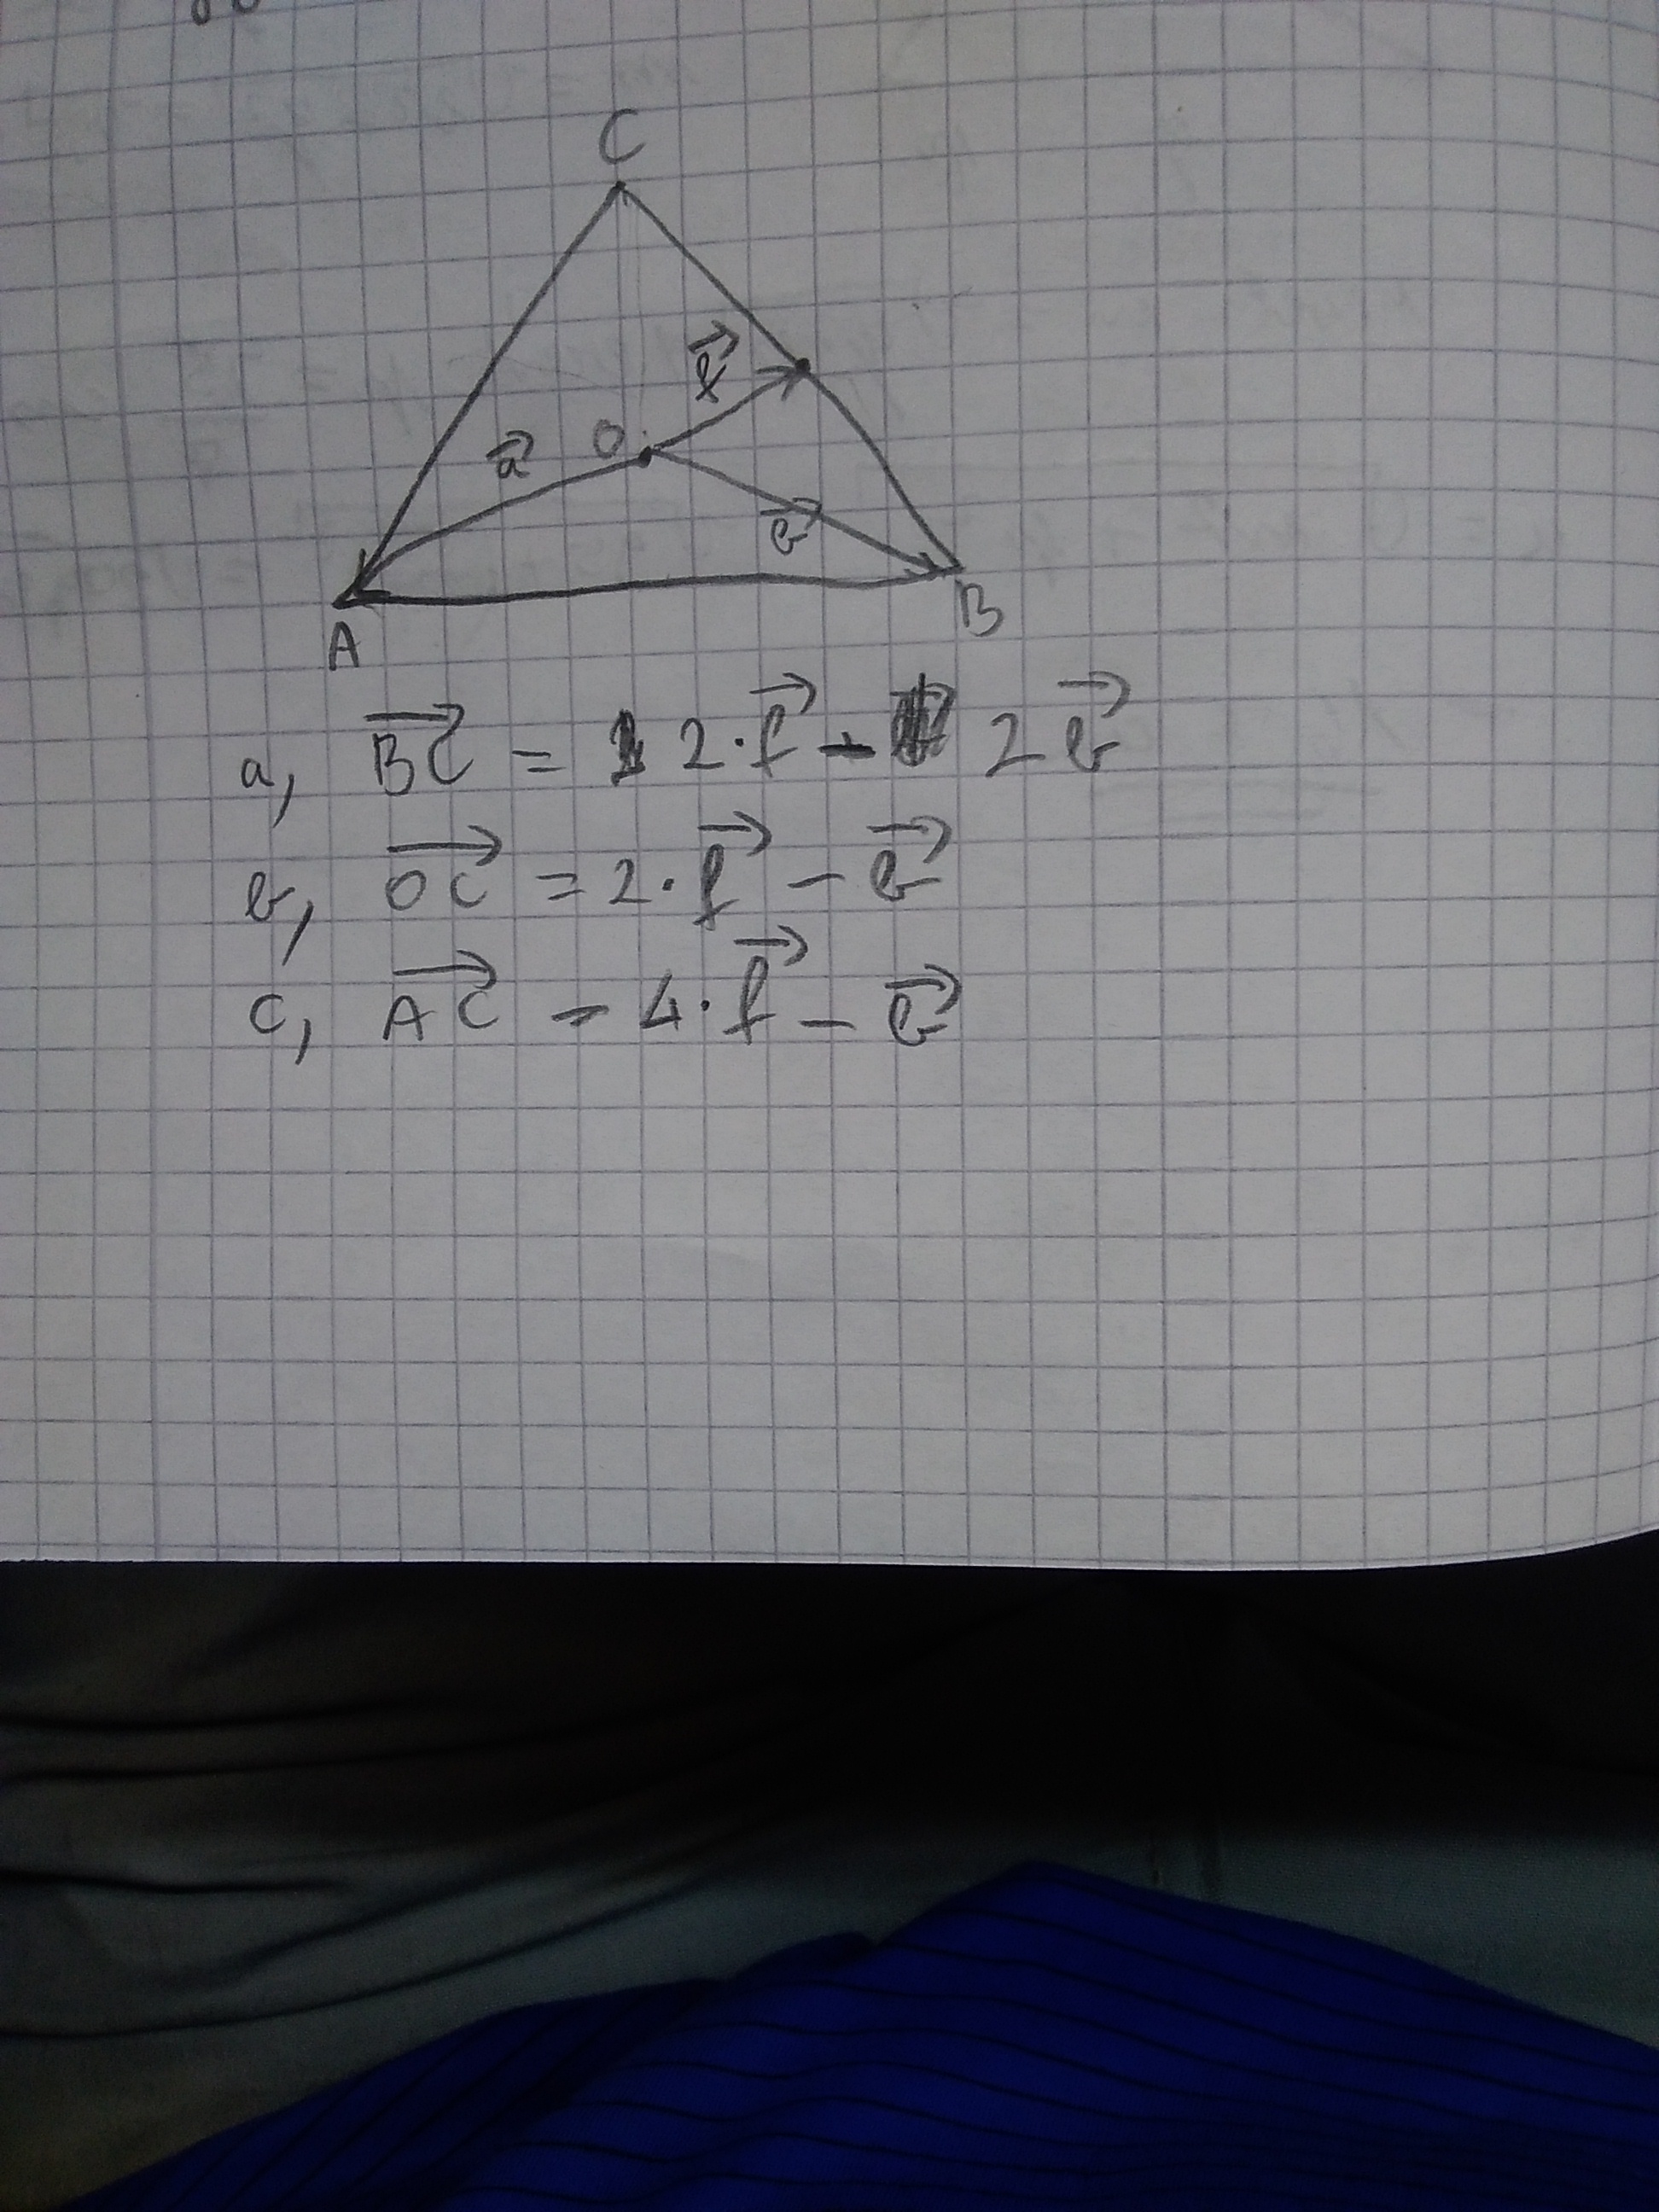 C
f⃗
O
a⃗
b⃗
A
B
a, BC⃗ = 2·f⃗ - 2b⃗
b, OC⃗ = 2·f⃗ - b⃗
c, AC⃗ = 4·f⃗ - b⃗